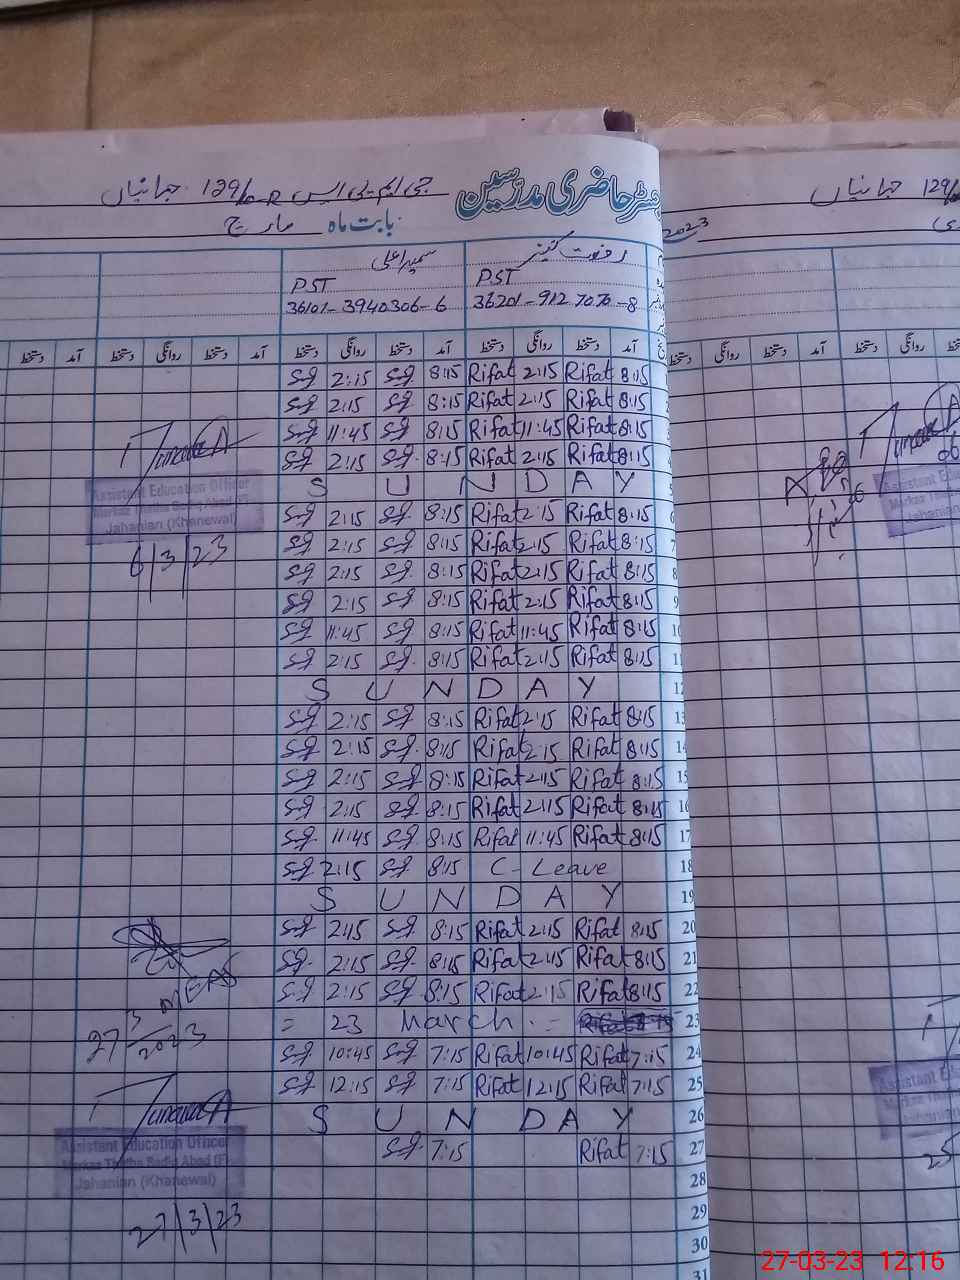 جی ایم پی ایس 129/10-R جہانیاں
رجسٹر حاضری مدرسین
بابت ماہ مارچ
2023
جہانیاں 129/
سمیرا علی
رفعت کنیز
PST PST
36101-3940306-6 36201-9127070-8
دستخط آمد دستخط روانگی دستخط آمد دستخط روانگی دستخط آمد دستخط روانگی دستخط آمد
دستخط روانگی دستخط آمد دستخط روانگی
2:15 8:15 Rifat 2:15 Rifat 8:15
2:15 8:15 Rifat 2:15 Rifat 8:15
11:45 8:15 Rifat 11:45 Rifat 8:15
2:15 8:15 Rifat 2:15 Rifat 8:15
SUNDAY
2:15 8:15 Rifat 2:15 Rifat 8:15 6
2:15 8:15 Rifat 2:15 Rifat 8:15 7
2:15 8:15 Rifat 2:15 Rifat 8:15 8
2:15 8:15 Rifat 2:15 Rifat 8:15 9
11:45 8:15 Rifat 11:45 Rifat 8:15 10
2:15 8:15 Rifat 2:15 Rifat 8:15 11
SUNDAY 12
2:15 8:15 Rifat 2:15 Rifat 8:15 13
2:15 8:15 Rifat 2:15 Rifat 8:15 14
2:15 8:15 Rifat 2:15 Rifat 8:15 15
2:15 8:15 Rifat 2:15 Rifat 8:15 16
11:45 8:15 Rifat 11:45 Rifat 8:15 17
2:15 8:15 C-Leave 18
SUNDAY 19
2:15 8:15 Rifat 2:15 Rifat 8:15 20
2:15 8:15 Rifat 2:15 Rifat 8:15 21
2:15 8:15 Rifat 2:15 Rifat 8:15 22
= 23 March = 23
10:45 7:15 Rifat 10:45 Rifat 7:15 24
12:15 7:15 Rifat 12:15 Rifat 7:15 25
SUNDAY 26
7:15 Rifat 7:15 27
28
29
30
31
Assistant Education Officer
Markaz Thatha Sadiq Abad (F)
Jahanian (Khanewal)
6/3/23
MEAS
27/3/2023
Assistant Education Officer
Markaz Thatha Sadiq Abad (F)
Jahanian (Khanewal)
27/3/23
Assistant Education
Markaz Thatha
Jahanian
Assistant Edu
Markaz Thatha
Jahanian
25
27-03-23 12:16